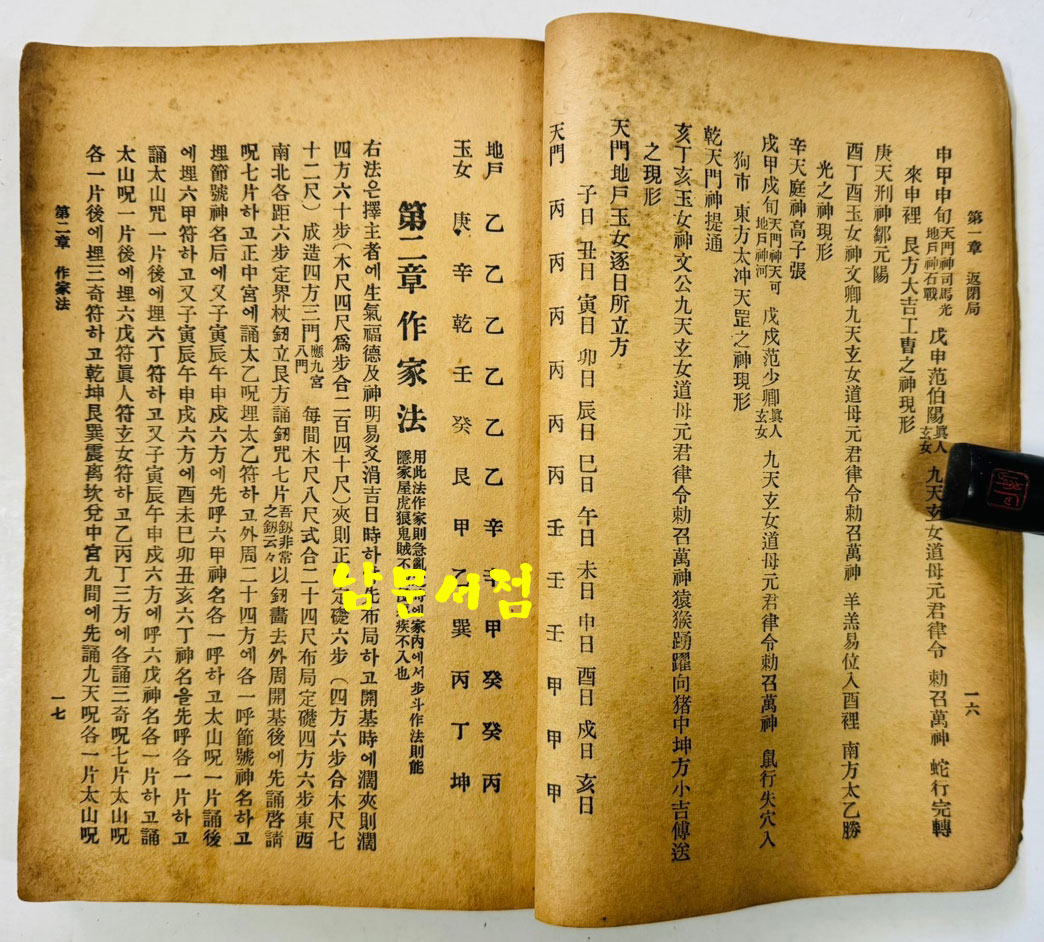 第一章 返閉局
一六
申甲申旬天門神司馬光地戶神石戰 戊申范伯陽眞人玄女 九天玄女道母元君律令 勅召萬神 蛇行完轉
來申裡 艮方大吉工曹之神現形
庚天刑神鄒元陽
酉丁酉玉女神文卿九天玄女道母元君律令勅召萬神 羊羔易位入酉裡 南方太乙勝
光之神現形
辛天庭神高子張
戌甲戌旬天門神天可地戶神河 戊戌范少卿眞人玄女 九天玄女道母元君律令勅召萬神 鼠行失穴入
狗市 東方太冲天罡之神現形
乾天門神提通
亥丁亥玉女神文公九天玄女道母元君律令勅召萬神猿猴踴躍向猪中坤方小吉傳送
之現形
天門地戶玉女逐日所立方
子日 丑日 寅日 卯日 辰日 巳日 午日 未日 申日 酉日 戌日 亥日
天門 丙 丙 丙 丙 丙 丙 壬 壬 壬 甲 甲 甲
地戶 乙 乙 乙 乙 乙 乙 辛 辛 甲 癸 癸 丙
玉女 庚 辛 乾 壬 癸 艮 甲 乙 巽 丙 丁 坤
第二章 作家法 用此法作家則急亂에家內에서步斗作法則能
隱家屋虎狼鬼賊不疾不入也
右法은擇主者에生氣福德及神明易爻涓吉日時하先布局하고開基時에濶夾則濶
四方六十步(木尺四尺爲步合二百四十尺)夾則正定礎六步(四方六步合木尺七
十二尺)成造四方三門應九宮八門 每間木尺八尺式合二十四尺布局定礎四方六步東西
南北各距六步定界杖釰立艮方誦釰咒七片吾釰非常之釰云々以釰畵去外周開基後에先誦啓請
呪七片하고正中宮에誦太乙呪埋太乙符하고外周二十四方에各一呼節號神名하고
埋節號神名后에又子寅辰午申戌六方에先呼六甲神名各一呼하고太山呪一片誦後
에埋六甲符하고又子寅辰午申戌六方에酉未巳卯丑亥六丁神名을先呼各一片하고
誦太山咒一片後에埋六丁符하고又子寅辰午申戌六方에呼六戊神名各一片하고誦
太山呪一片後에埋六戊符眞人符玄女符하고乙丙丁三方에各誦三奇呪七片太山呪
各一片後에埋三奇符하고乾坤艮巽震离坎兌中宮九間에先誦九天呪各一片太山呪
第二章 作家法
一七
남문서점